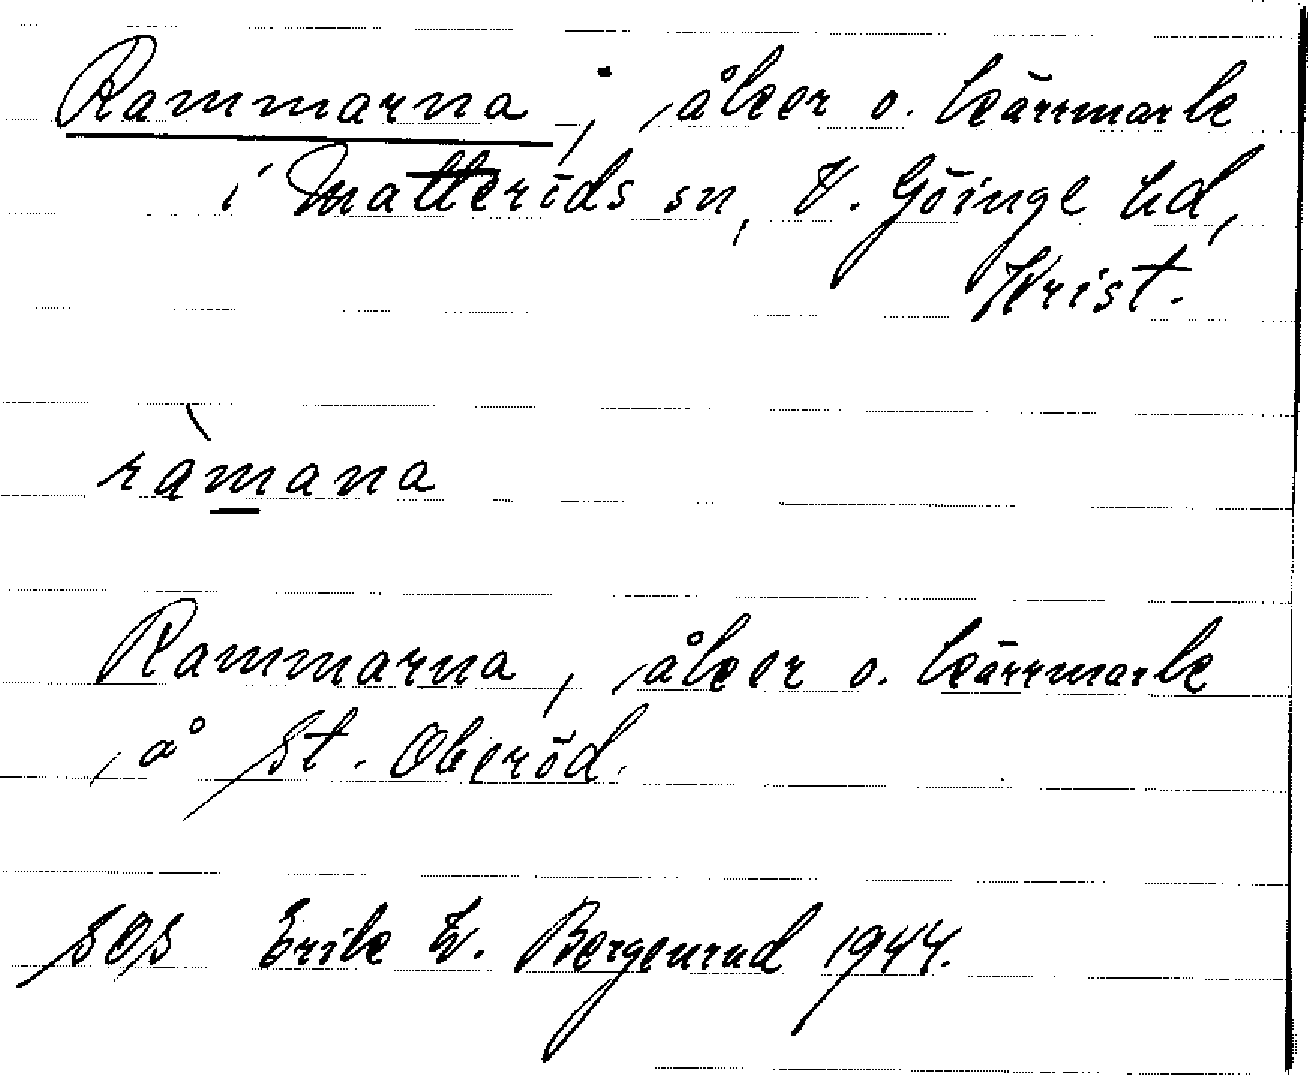 Rammarna, åker o. kärrmark
i Matteröds sn, V. Göinge hd,
Krist.
ràmana
Rammarna, åker o. kärrmark
å St. Oberöd.
SOS Erik W. Bergenrud 1944.